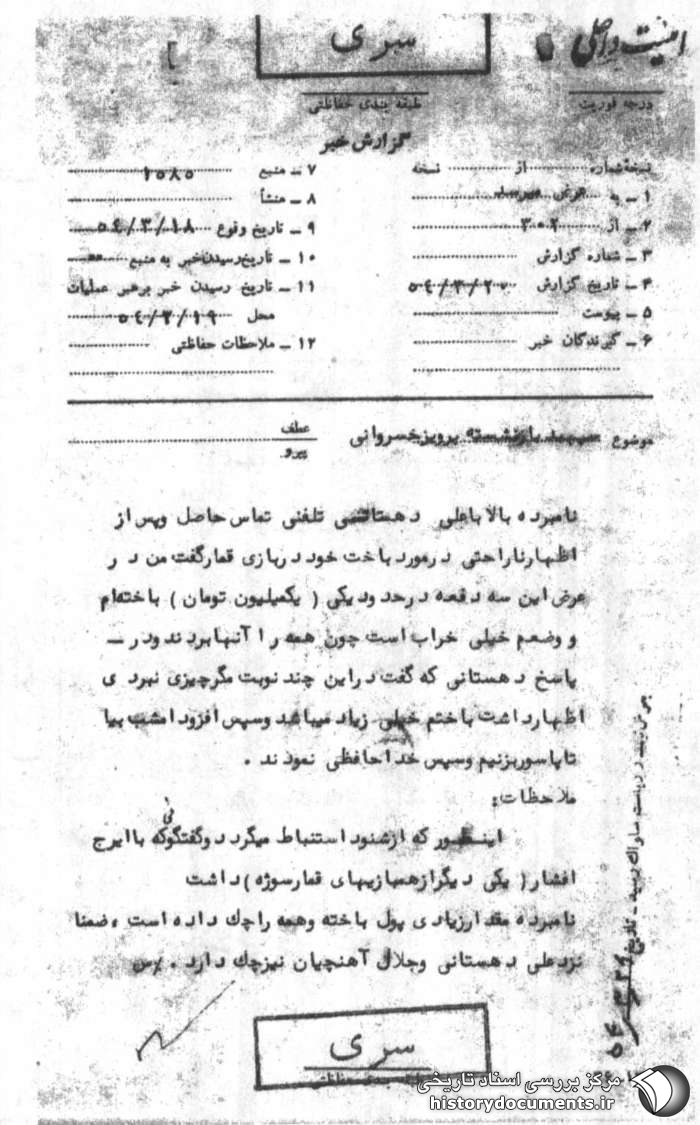 امنیت داخلی
سری
درجه فوریت
طبقه بندی حفاظتی
گزارش خبر
نسخهٔ شماره ........ از ........ نسخه
۱ ـ به عرض میرسد
۲ ـ از ۳۰۲
۳ ـ شماره گزارش
۴ ـ تاریخ گزارش ۵۴/۳/۲۰
۵ ـ پیوست
۶ ـ گیرندگان خبر
۷ ـ منبع ۱۰۸۵
۸ ـ منشأ
۹ ـ تاریخ وقوع ۵۴/۳/۱۸
۱۰ ـ تاریخ رسیدن خبر به منبع
۱۱ ـ تاریخ رسیدن خبر برهبر عملیات
محل ۵۴/۳/۱۹
۱۲ ـ ملاحظات حفاظتی
موضوع سپهبد بازنشسته پرویز خسروانی
عطف
پیرو
نامبرده بالا باعلی دهستانی تلفنی تماس حاصل وپس از
اظهارناراحتی درمورد باخت خود دربازی قمارگفت من در
عرض این سه دفعه درحدود یکی ( یکمیلیون تومان ) باخته‌ام
و وضعم خیلی خراب است چون همه را آنهابردند ودر ـ
پاسخ دهستانی که گفت دراین چند نوبت مگرچیزی نبردی
اظهارداشت باختم خیلی زیاد میباشد وسپس افزود امشب بیا
تاپاسوربزنیم وسپس خداحافظی نمودند .
ملاحظات:
اینطور که ازشنود استنباط میگردد وگفتگوئی که باایرج
افشار( یکی دیگرازهمبازیهای قمارسوژه )داشت
نامبرده مقدارزیادی پول باخته وهمه راچک داده است ،ضمنا
نزدعلی دهستانی وجلال آهنچیان نیزچک دارد . /س
سری
مرکز بررسی اسناد تاریخی
historydocuments.ir